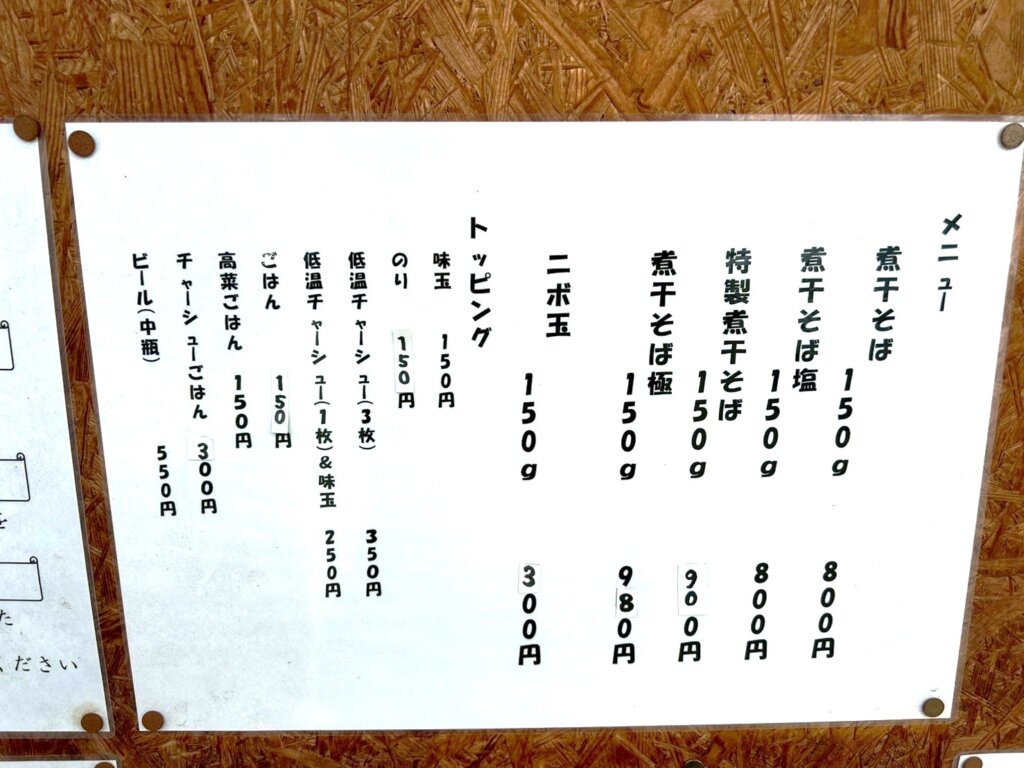 メニュー
煮干そば 150g 800円
煮干そば塩 150g 800円
特製煮干そば 150g 900円
煮干そば極 150g 980円
ニボ玉 150g 300円
トッピング
味玉 150円
のり 150円
低温チャーシュー(3枚) 350円
低温チャーシュー(1枚)&味玉 250円
ごはん 150円
高菜ごはん 150円
チャーシューごはん 300円
ビール(中瓶) 550円
を
た
ください